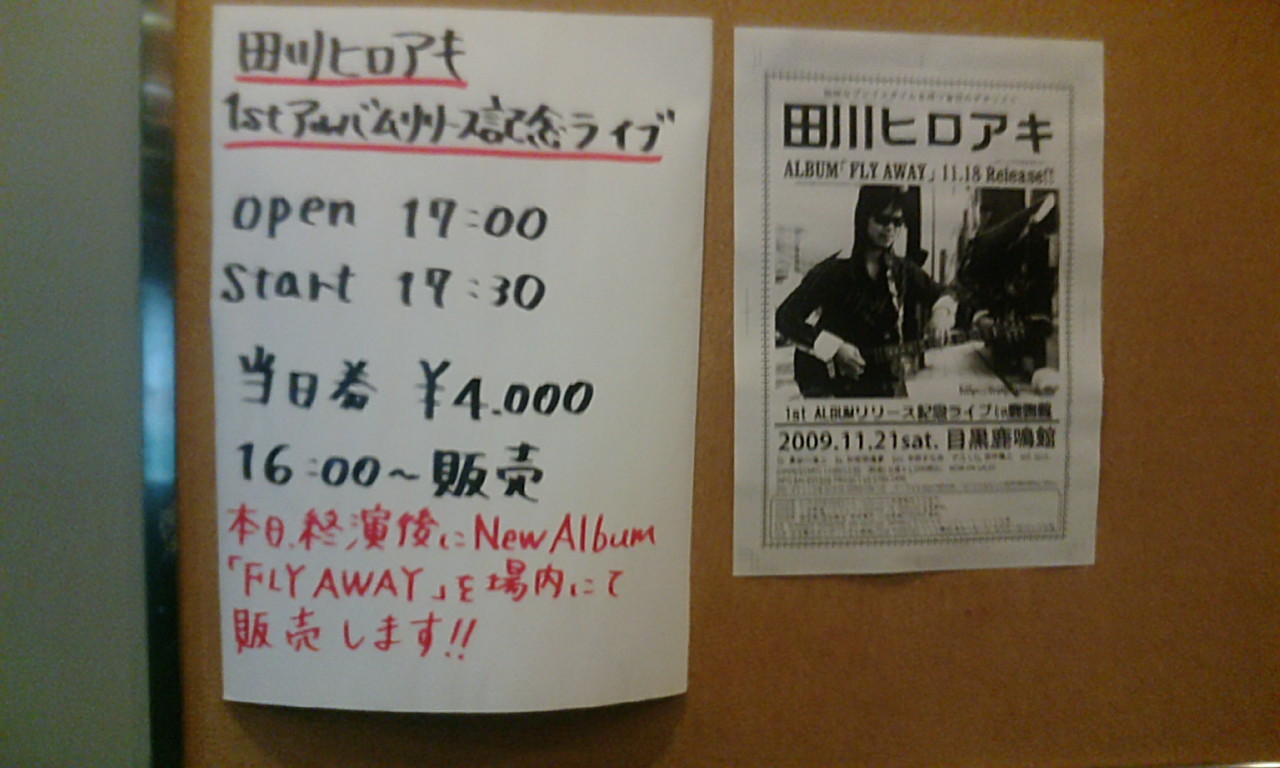 田川ヒロアキ
1stアルバムリリース記念ライブ
open 17:00
Start 17:30
当日券 ¥4.000
16:00~販売
本日、終演後にNew Album
「FLY AWAY」を場内にて
販売します!!
田川ヒロアキ
ALBUM「FLY AWAY」11.18 Release!!
1st ALBUMリリース記念ライブin鹿鳴館
2009.11.21sat. 目黒鹿鳴館